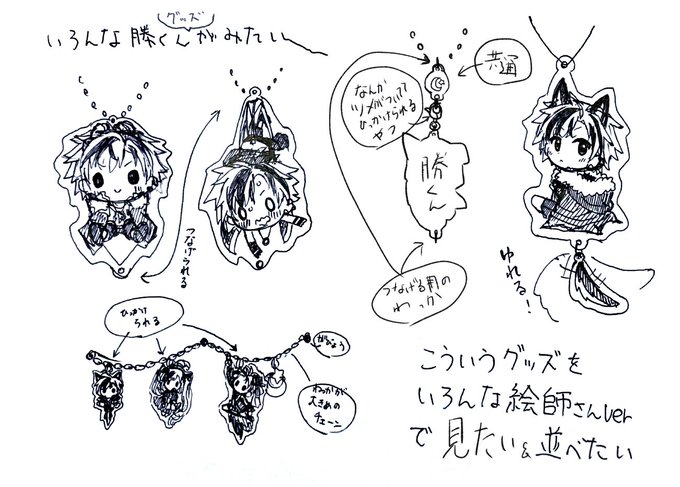 グッズ
いろんな勝くんがみたい
共通
なんか
ツメがついてて
ひっかけられる
やつ
勝くん
つなげられる
つなげる用の
わっか
ゆれる!
ひっかけ
られる
がびょう
わっかが
大きめの
チェーン
こういうグッズを
いろんな絵師さんver
で見たい&並べたい